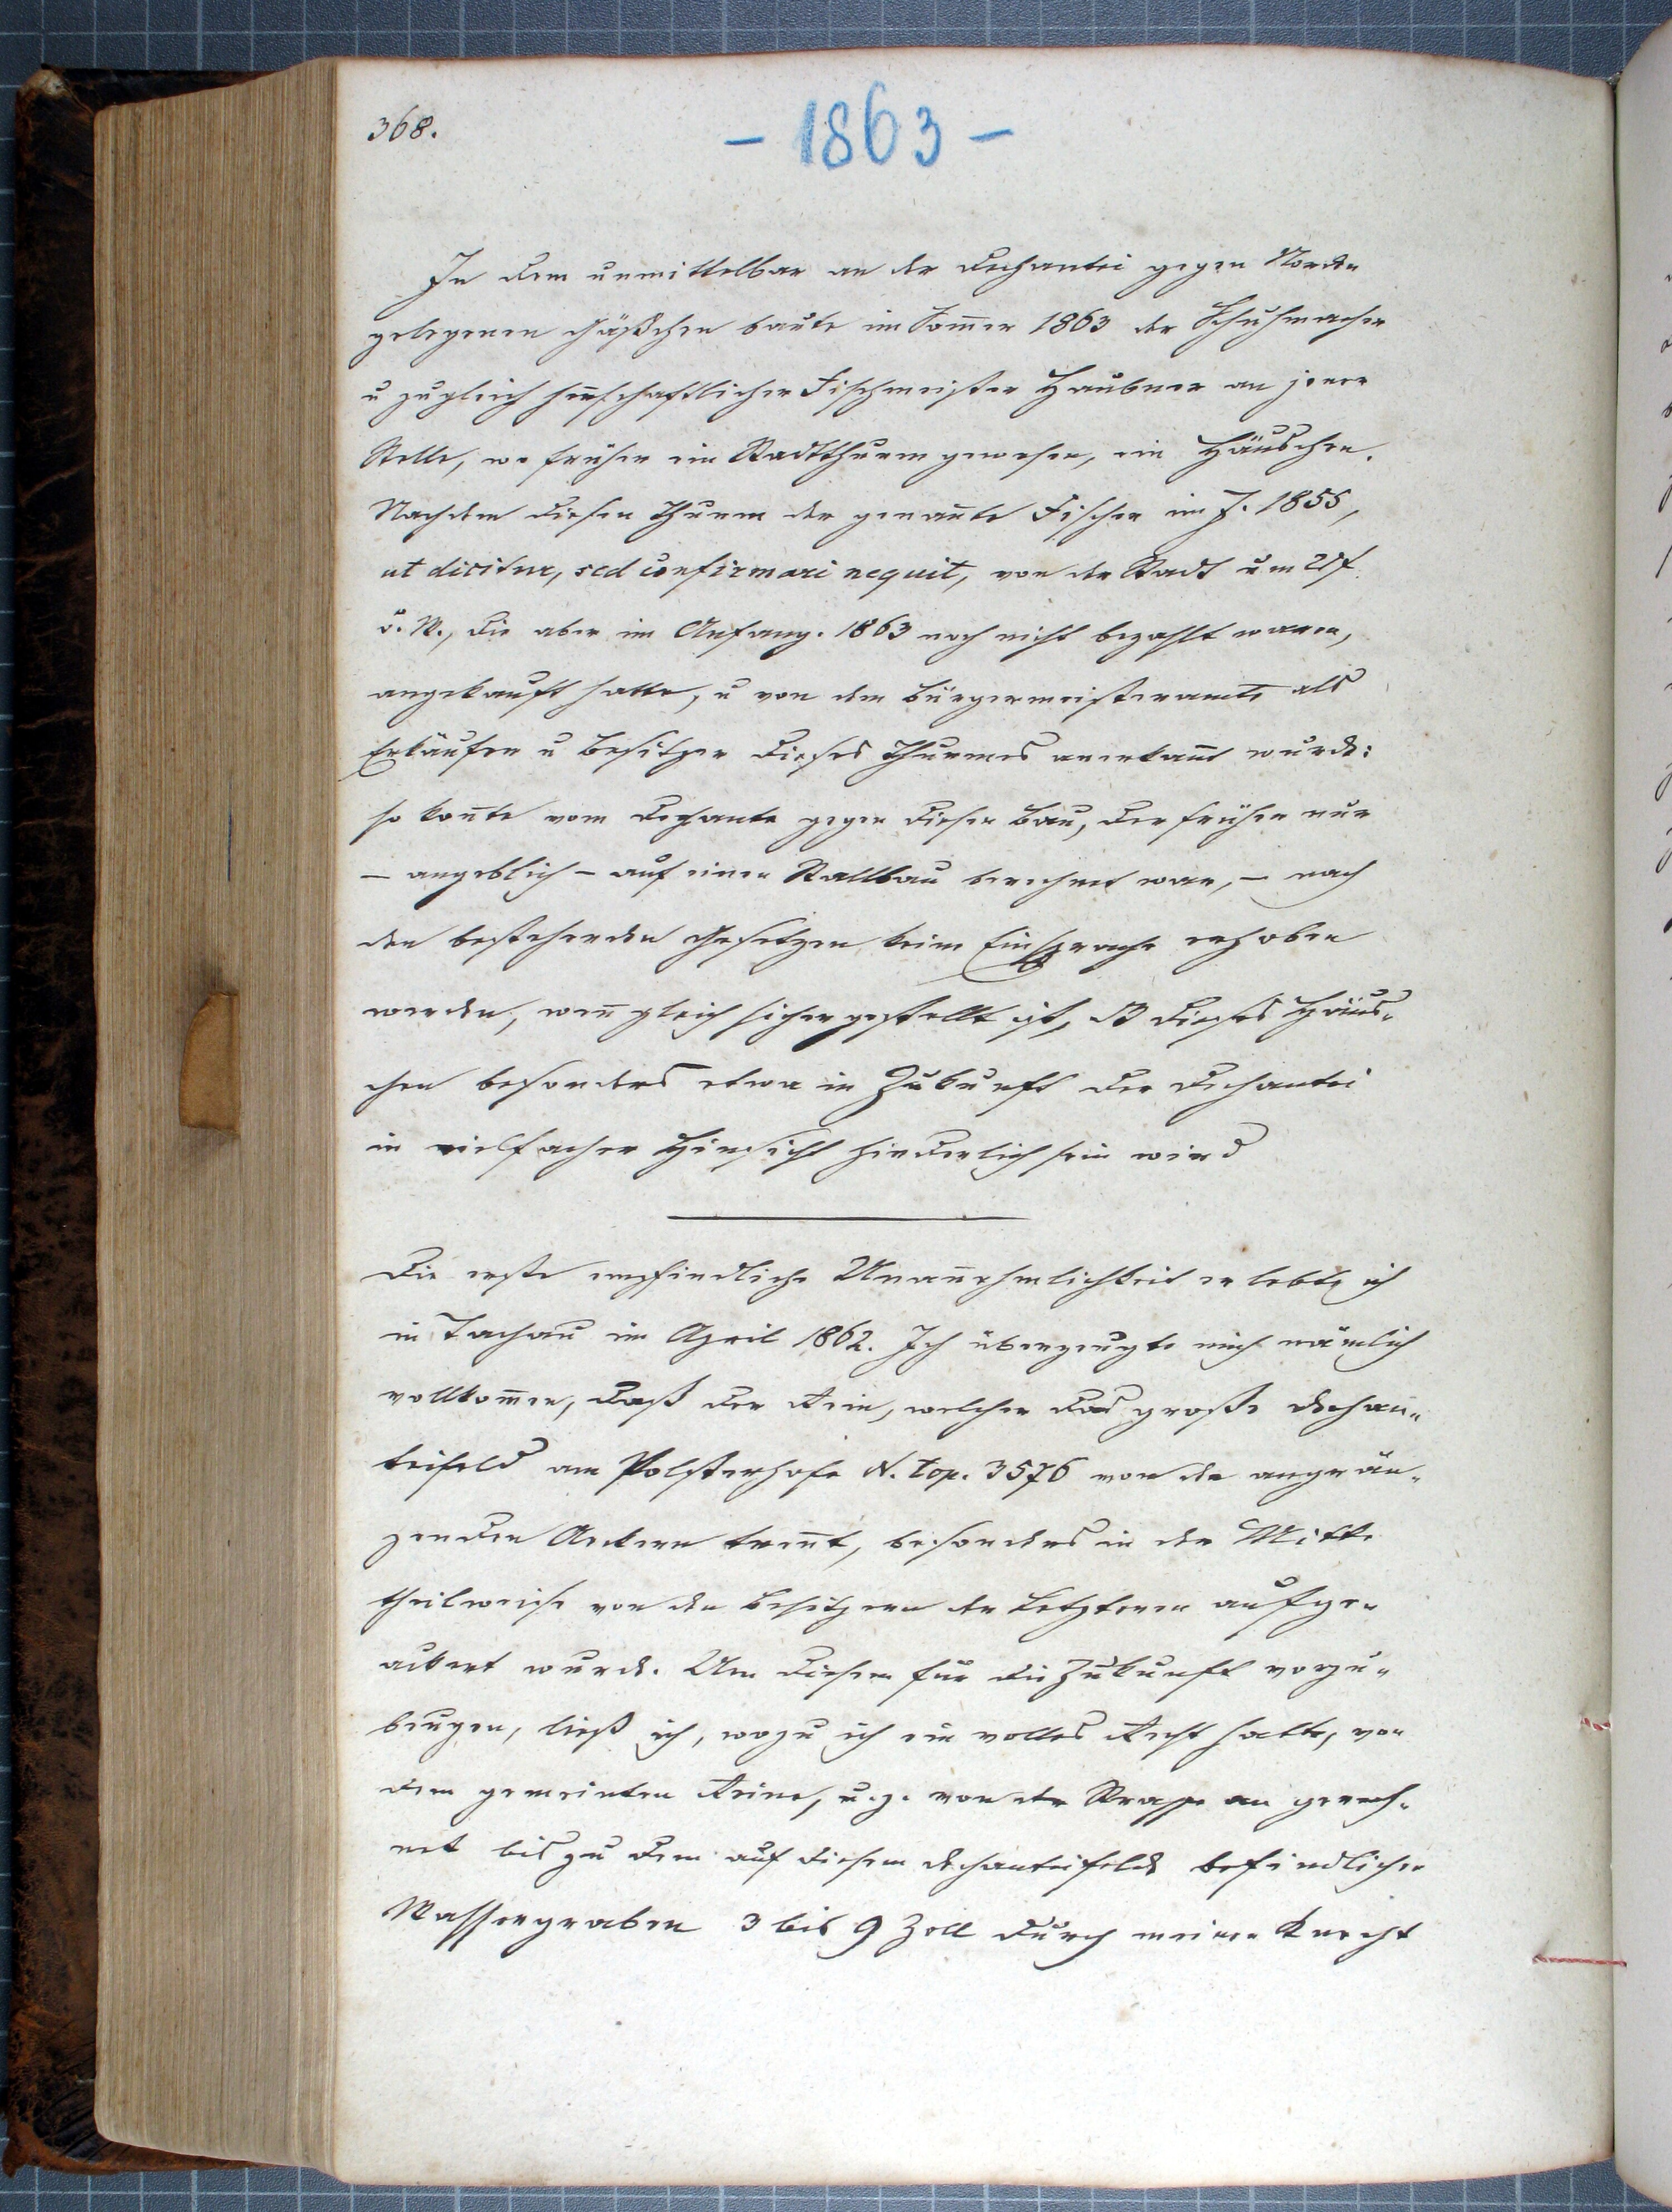 368.
- 1863 -
In dem unmittelbar an der Dechantei gegen Norden
gelegenen Gäßchen baute im Som̅er 1863 der Schuhmacher
u zugleich herrschaftlicher Fischmeister Haubner an jener
Stelle, wo früher ein Stadtthurm gewesen, ein Häuschen.
Nachdem diesen Thurm der genan̅te Fischer im J. 1855,
ut dicitur, sed confirmari nequit, von der Stadt um f
ö. W., die aber im Anfang. 1863 noch nicht bezahlt waren,
angekauft hatte, u von dem Bürgermeisteramte als
Erkäufer u Besitzer dieses Thurmes anerkan̅t wurde:
so kon̅te vom Dechante gegen diesen Bau, der früher nur
– angeblich – auf einen Stallbau berechnet war, – nach
den bestehenden Gesetzen keine Einsprache erhoben
werden, wen̅gleich sichergestellt ist, dß dieses Häus-
chen besonders etwa in Zukunft der Dechantei
in vielfacher Hinsicht hinderlich sein wird
Die erste empfindliche Unan̅ehmlichkeit erlebte ich
in Tachau im April 1862. Ich überzeugte mich nämlich
vollkom̅en, daß der Rein, welcher das große Dechan-
teifeld am Polsterhofe N. top. 3576 von den angrän-
zenden Aeckern tren̅t, besonders in der Mitte
theilweise von den Besitzern der Letzteren aufge-
ackert wurde. Um diesem für die Zukunft vorzu-
beugen, ließ ich, wozu ich ein volles Recht hatte, von
dem gemeinten Reine, u. z. von der Strasse an gerech-
net bis zu dem auf diesem Dechanteifelde befindlichen
Wassergraben 3 bis 9 Zoll durch meinen Knecht